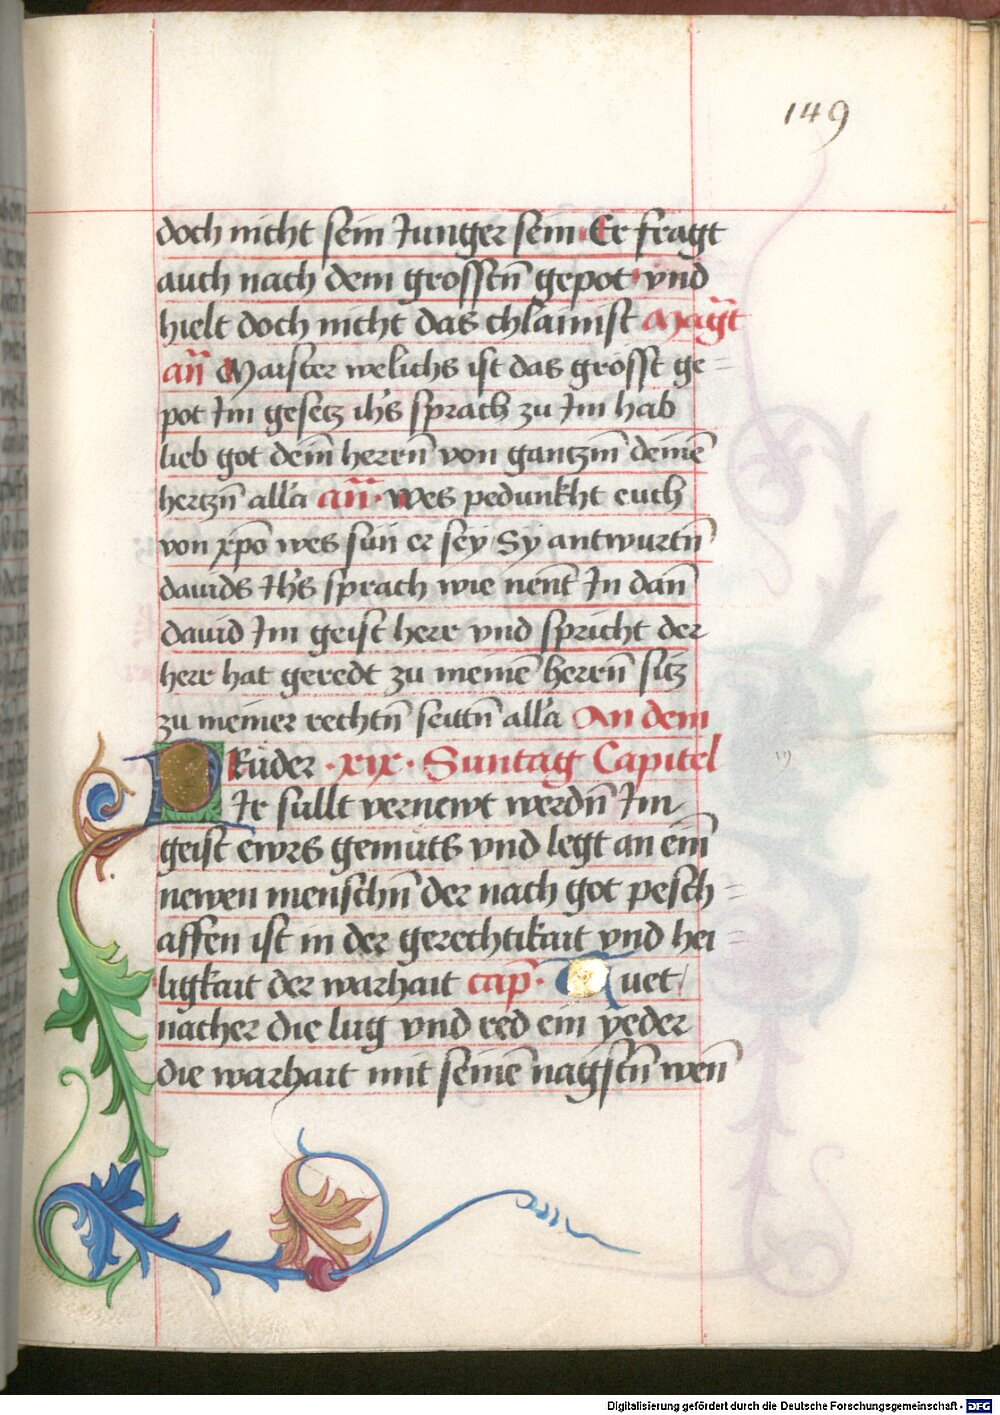 149
doch nicht sein Junger sein · Er fragt
auch nach dem grosstn̄ gepot · vnd
hielt doch nicht das chlainist Mag̃t
an̄ Maister welichs ist das grosst ge=
pot Im gesetz ih̄s sprach zu Im hab
lieb got dein̄ herrn̄ von gantzm̄ deinē
hertzn̄ all'a an̄ · Wes pedunkht euch
von xp̄o wes sün er sey Sy antwurtn̄
dauids Ih̄s sprach wie nent̄ In dan̄
dauid Im geist herr vnd spricht der
herr hat geredt zu meinē herrn̄ sitz
zu meiner rechtn̄ seittn̄ all'a An dem
Rüder · xix · Suntag Capitel
Ir sullt vernewt werdn̄ Im
geist ewrs gemüts vnd legt an ein̄
newen menschn̄ der nach got pesch=
affen ist in der gerechtikait vnd hei=
ligkait der warhait cap̄ · Ruet
nacher die lug vnd red ein yeder
die warhait mit seinē nagstn̄ wen̄
Digitalisierung gefördert durch die Deutsche Forschungsgemeinschaft - DFG